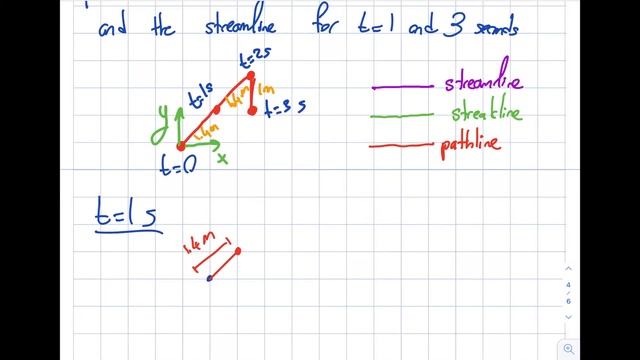 and the streamline for t=1 and 3 seconds
t=2s
t=1s
1.4m
1m
t=3 s
1.4m
y
x
t=0
streamline
streakline
pathline
t=1s
1.4m
4
6